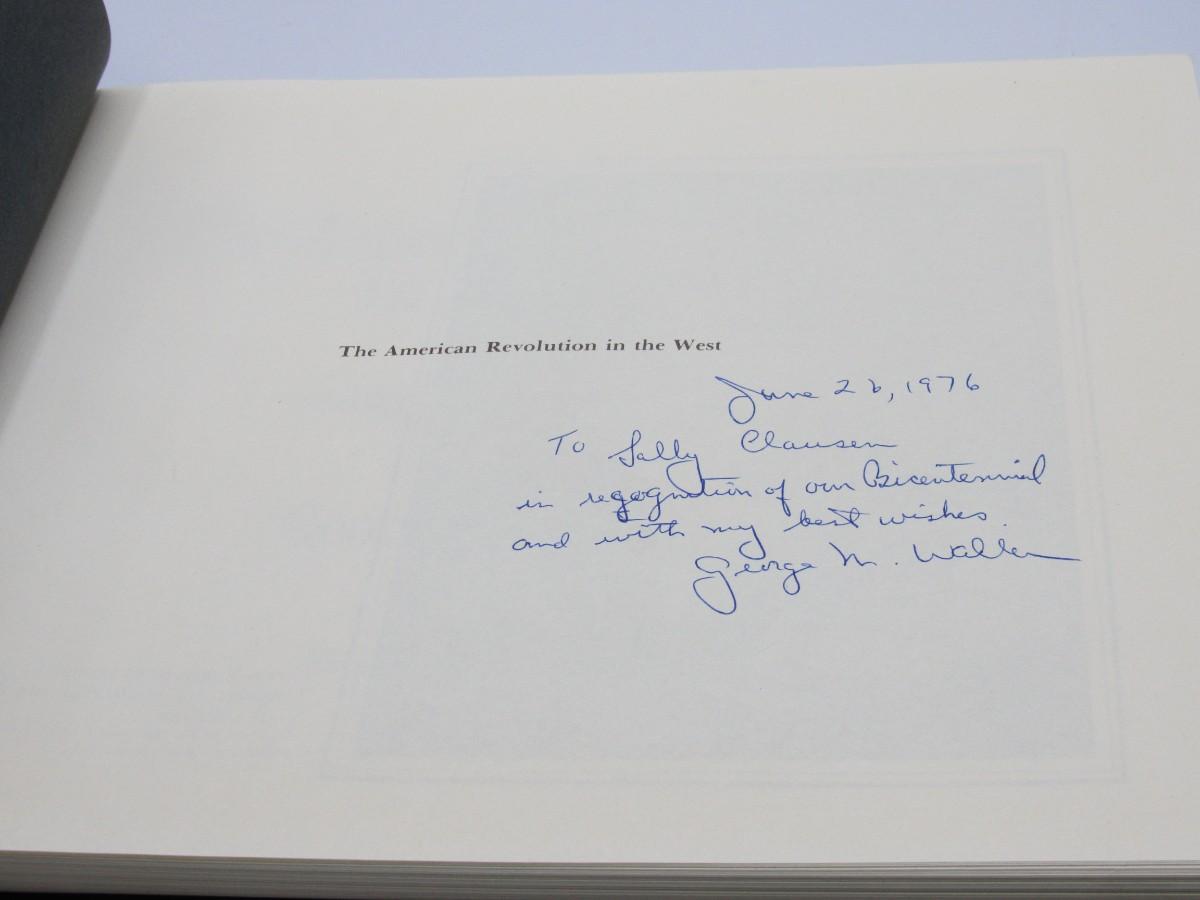 The American Revolution in the West
June 26, 1976
To Sally Clausen
in regognition of our Bicentennial
and with my best wishes.
George M. Waller